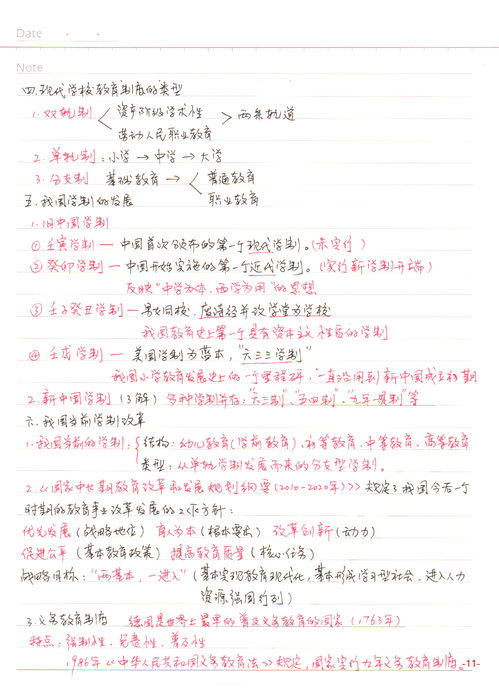 Date · ·
Note
四.现代学校教育制度的类型
1.双轨制 < 资产阶级学术性 > 两条轨道
劳动人民职业教育
2.单轨制:小学→中学→大学
3.分支制 基础教育→ < 普通教育
五.我国学制的发展 职业教育
1.旧中国学制
①壬寅学制—中国首次颁布的第一个现代学制。(未实行)
②癸卯学制—中国开始实施的第一个近代学制。(实行新学制开端)
反映"中学为本,西学为用"的思想
③壬子癸丑学制—男女同校,废读经并改学堂为学校
我国教育史上第一个具有资本主义性质的学制
④壬戌学制—美国学制为蓝本,"六三三学制"
我国小学教育发展史上的一个里程碑,一直沿用到新中国成立初期
2.新中国学制(了解)多种学制并存:"六三制"、"五四制"、"九年一贯制"等
六.我国当前学制改革
1.我国当前的学制:{结构:幼儿教育(学前教育)、初等教育、中等教育、高等教育
类型:从单轨学制发展而来的分支型学制。
2.《国家中长期教育改革和发展规划纲要(2010-2020年)》规定了我国今后一个
时期的教育事业改革发展的工作方针:
优先发展(战略地位) 育人为本(根本要求) 改革创新(动力)
促进公平(基本教育政策) 提高教育质量(核心任务)
战略目标:"两基本,一进入"(基本实现教育现代化,基本形成学习型社会,进入人力
资源强国行列)
3.义务教育制度 德国是世界上最早的普及义务教育的国家(1763年)
特点:强制性、免费性、普及性
1986年《中华人民共和国义务教育法》规定,国家实行九年义务教育制度。
-11-